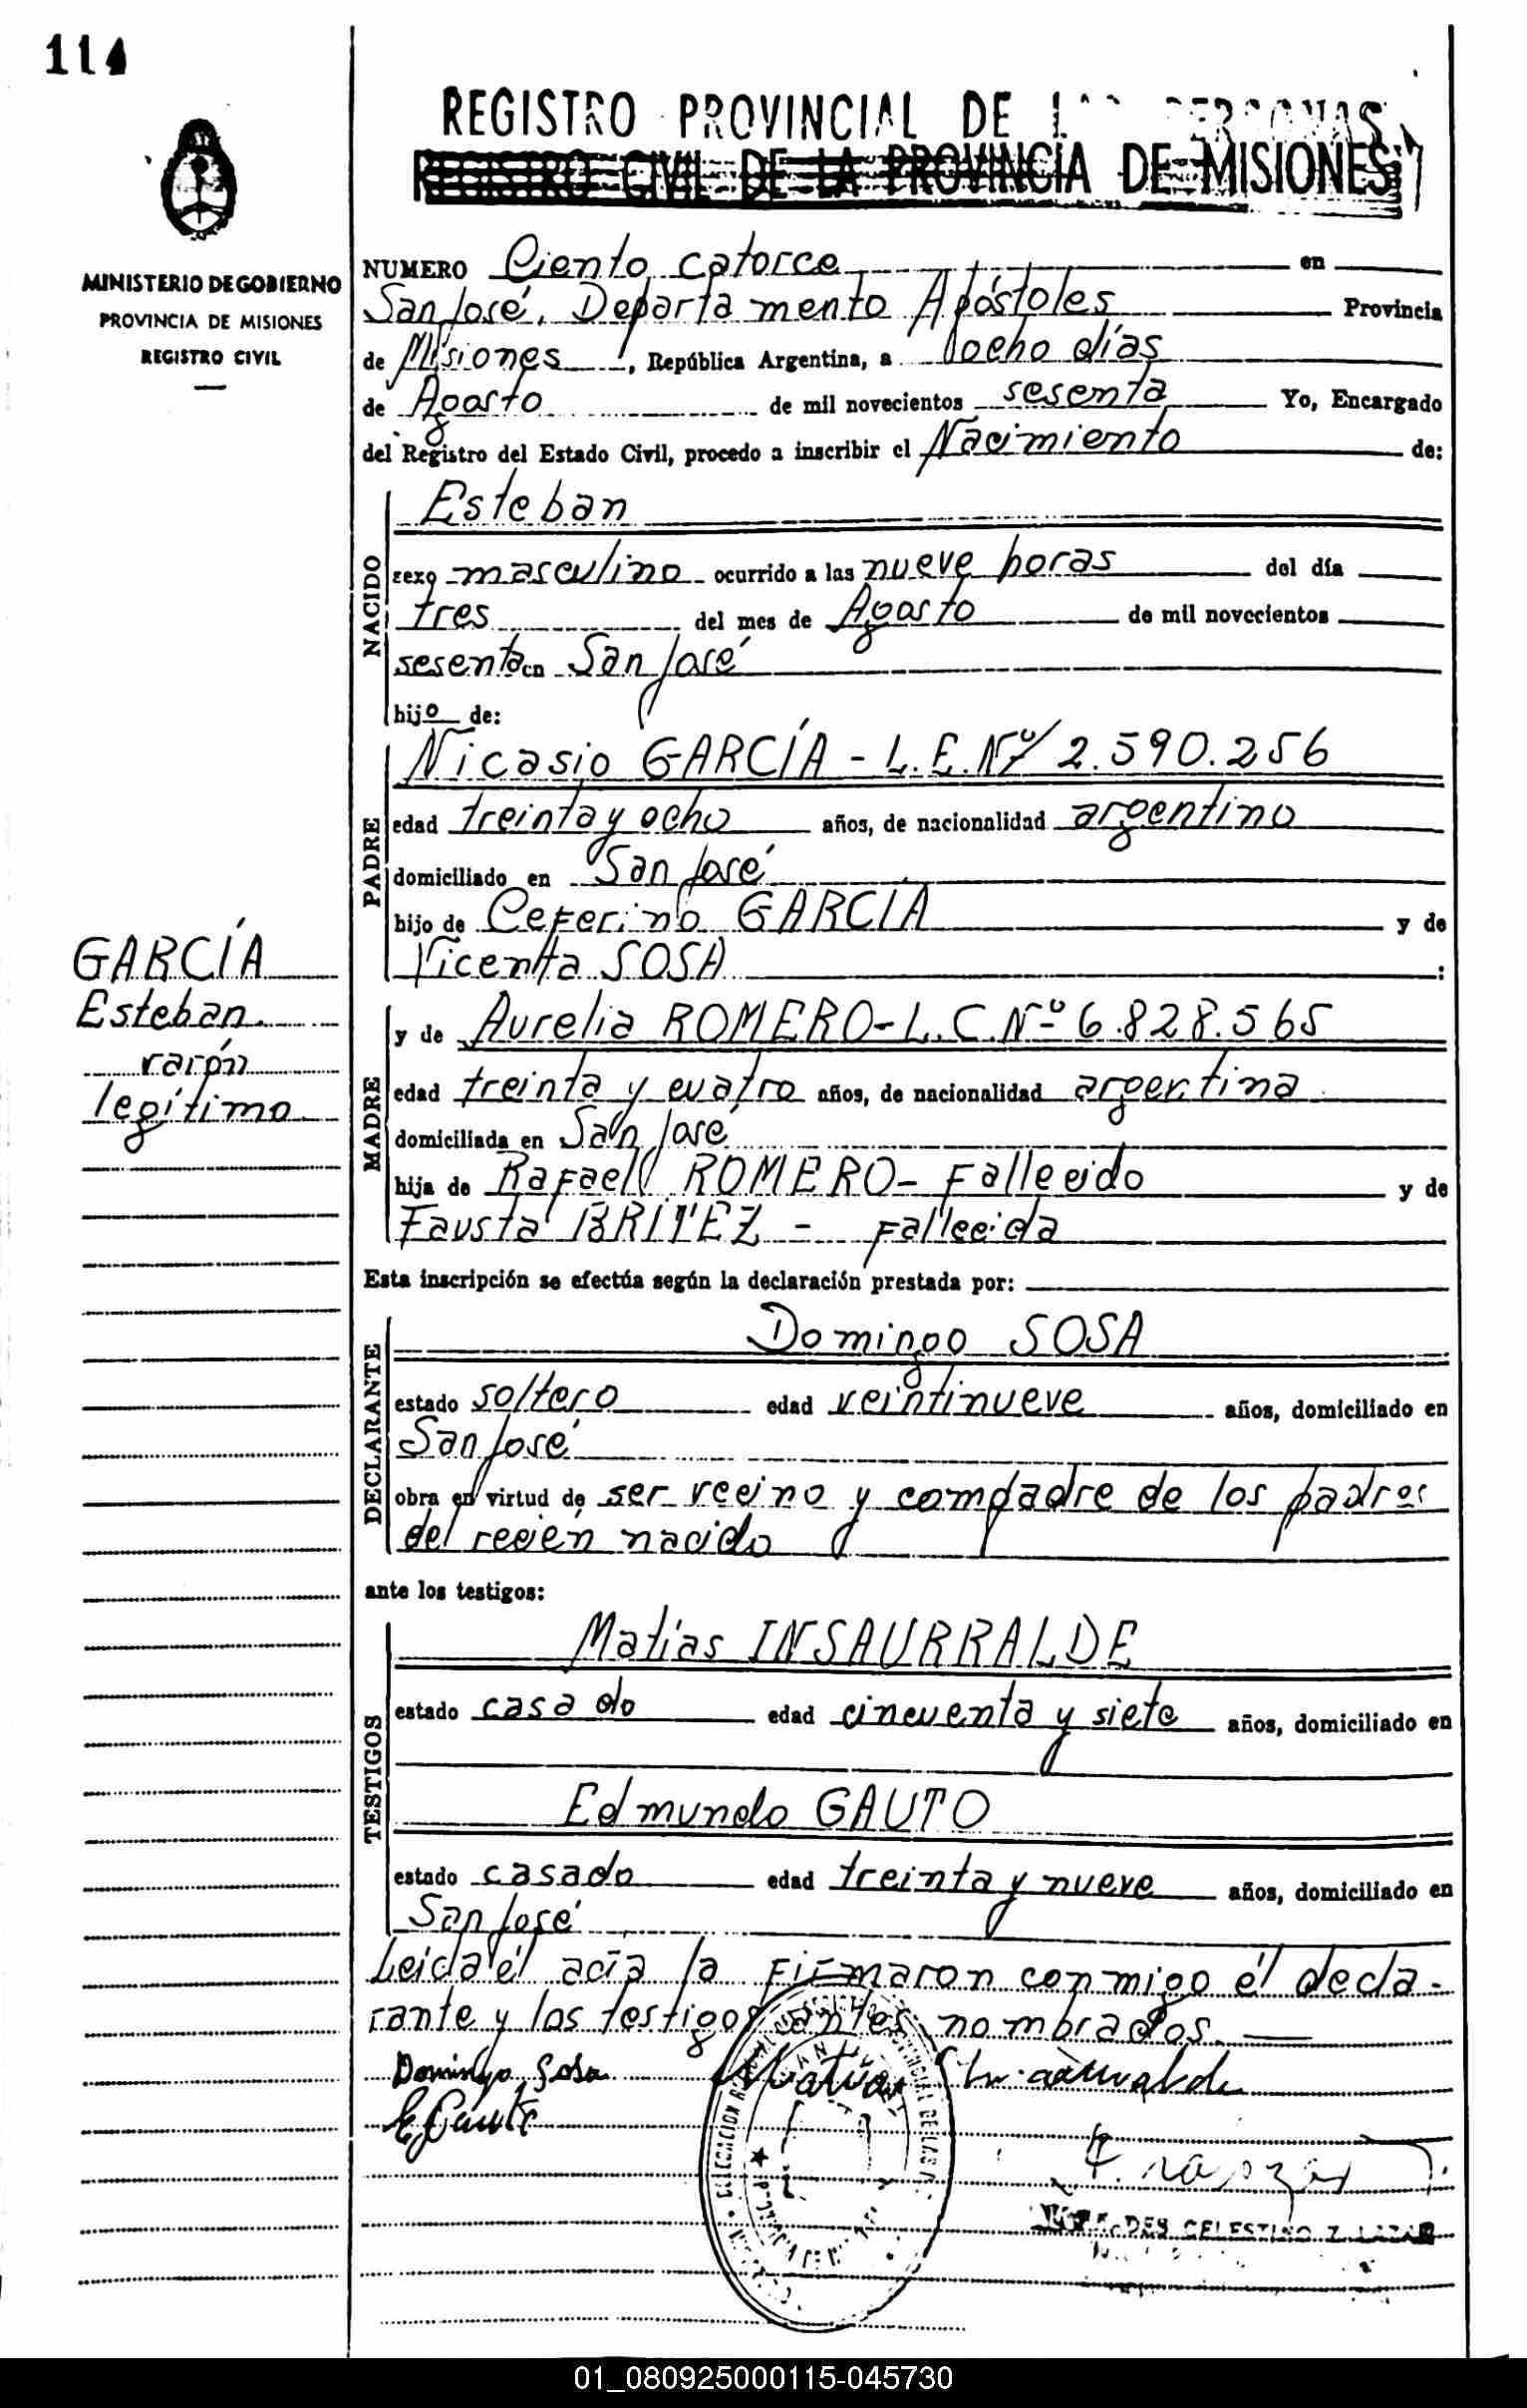 114
REGISTRO PROVINCIAL DE LAS PERSONAS
REGISTRO CIVIL DE LA PROVINCIA DE MISIONES
MINISTERIO DE GOBIERNO
PROVINCIA DE MISIONES
REGISTRO CIVIL
NUMERO Ciento catorce en
San José, Departamento Apóstoles Provincia
de Misiones, República Argentina, a ocho días
de Agosto de mil novecientos sesenta Yo, Encargado
del Registro del Estado Civil, procedo a inscribir el Nacimiento de:
NACIDO
Esteban
sexo masculino ocurrido a las nueve horas del día
tres del mes de Agosto de mil novecientos
sesenta en San José
hijo de:
PADRE
Nicasio GARCÍA - L.E. Nº 2.590.256
edad treinta y ocho años, de nacionalidad argentino
domiciliado en San José
hijo de Ceferino GARCIA y de
Vicenta SOSA:
GARCÍA
Esteban
varón
legítimo
MADRE
y de Aurelia ROMERO - L.C. Nº 6.828.565
edad treinta y cuatro años, de nacionalidad argentina
domiciliada en San José
hija de Rafael ROMERO - Fallecido y de
Fausta BRITEZ - Fallecida
Esta inscripción se efectúa según la declaración prestada por:
DECLARANTE
Domingo SOSA
estado soltero edad veintinueve años, domiciliado en
San José
obra en virtud de ser vecino y compadre de los padres
del recién nacido
ante los testigos:
TESTIGOS
Matías INSAURRALDE
estado casado edad cincuenta y siete años, domiciliado en
Edmundo GAUTO
estado casado edad treinta y nueve años, domiciliado en
San José
Leida él acta la Firmaron conmigo él decla-
rante y los testigos antes nombrados.
Domingo Sosa Matias Insaurralde
E Gauto
CELESTINO Z LAZAR
01_080925000115-045730